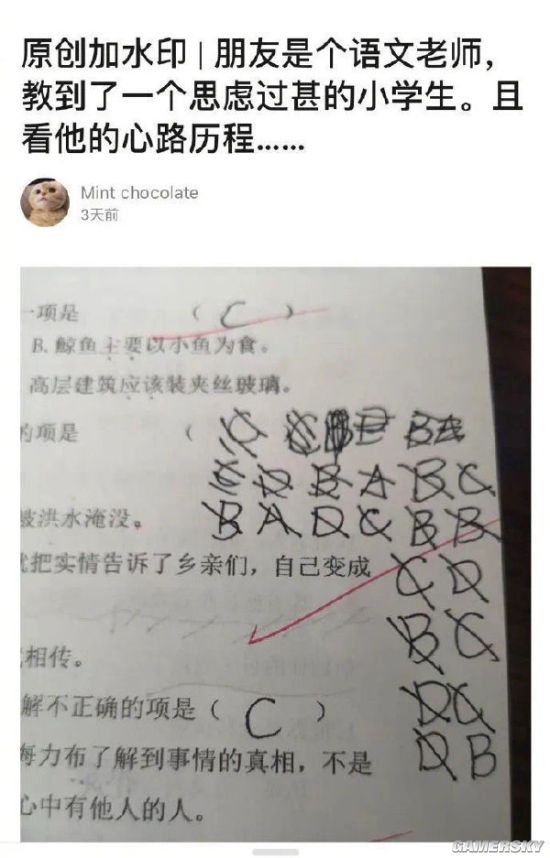 原创加水印 | 朋友是个语文老师，
教到了一个思虑过甚的小学生。且
看他的心路历程......
Mint chocolate
3天前
一项是 （ C ）
B. 鲸鱼主要以小鱼为食。
高层建筑应该装夹丝玻璃。
的项是 （
C D B A B C
被洪水淹没。 B A D C B B
把实情告诉了乡亲们，自己变成 C D
B C
相传。
D C
解不正确的项是（ C ）
海力布了解到事情的真相，不是 D B
心中有他人的人。
GAMERSKY